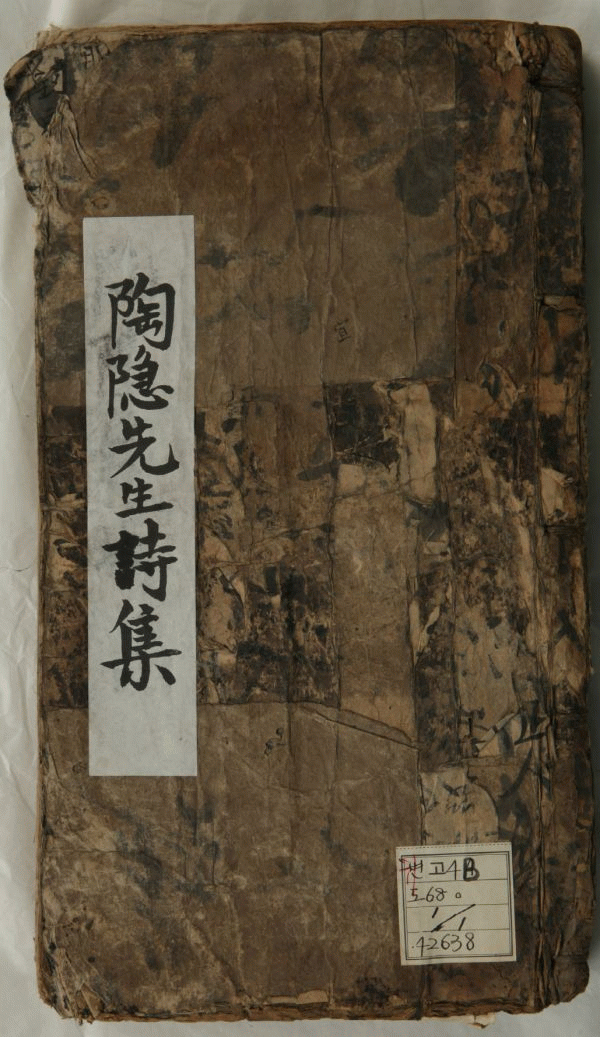 陶隐先生詩集
고4B
568
1/1
42638